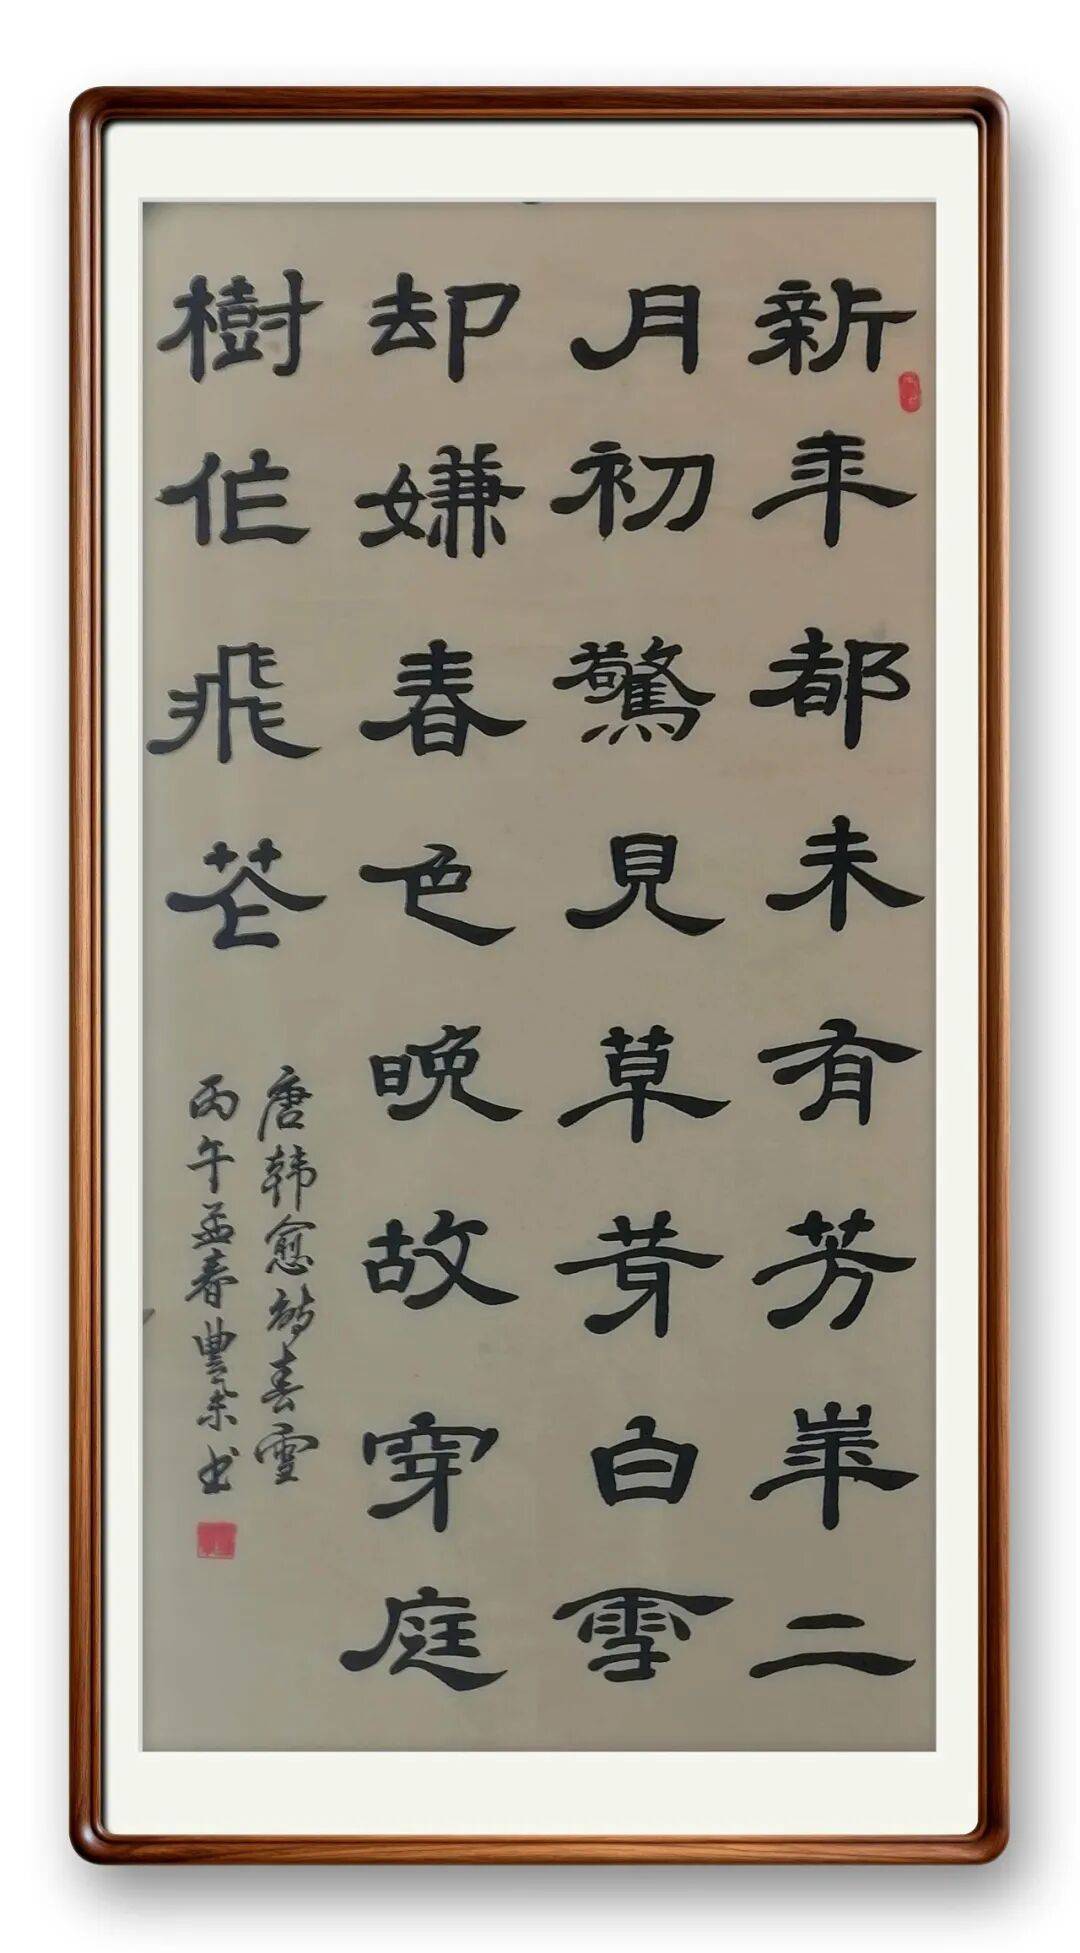 新年都未有芳華二
月初驚見草芽白雪
却嫌春色晚故穿庭
樹作飛花
唐韩愈詩春雪
丙午孟春豐书